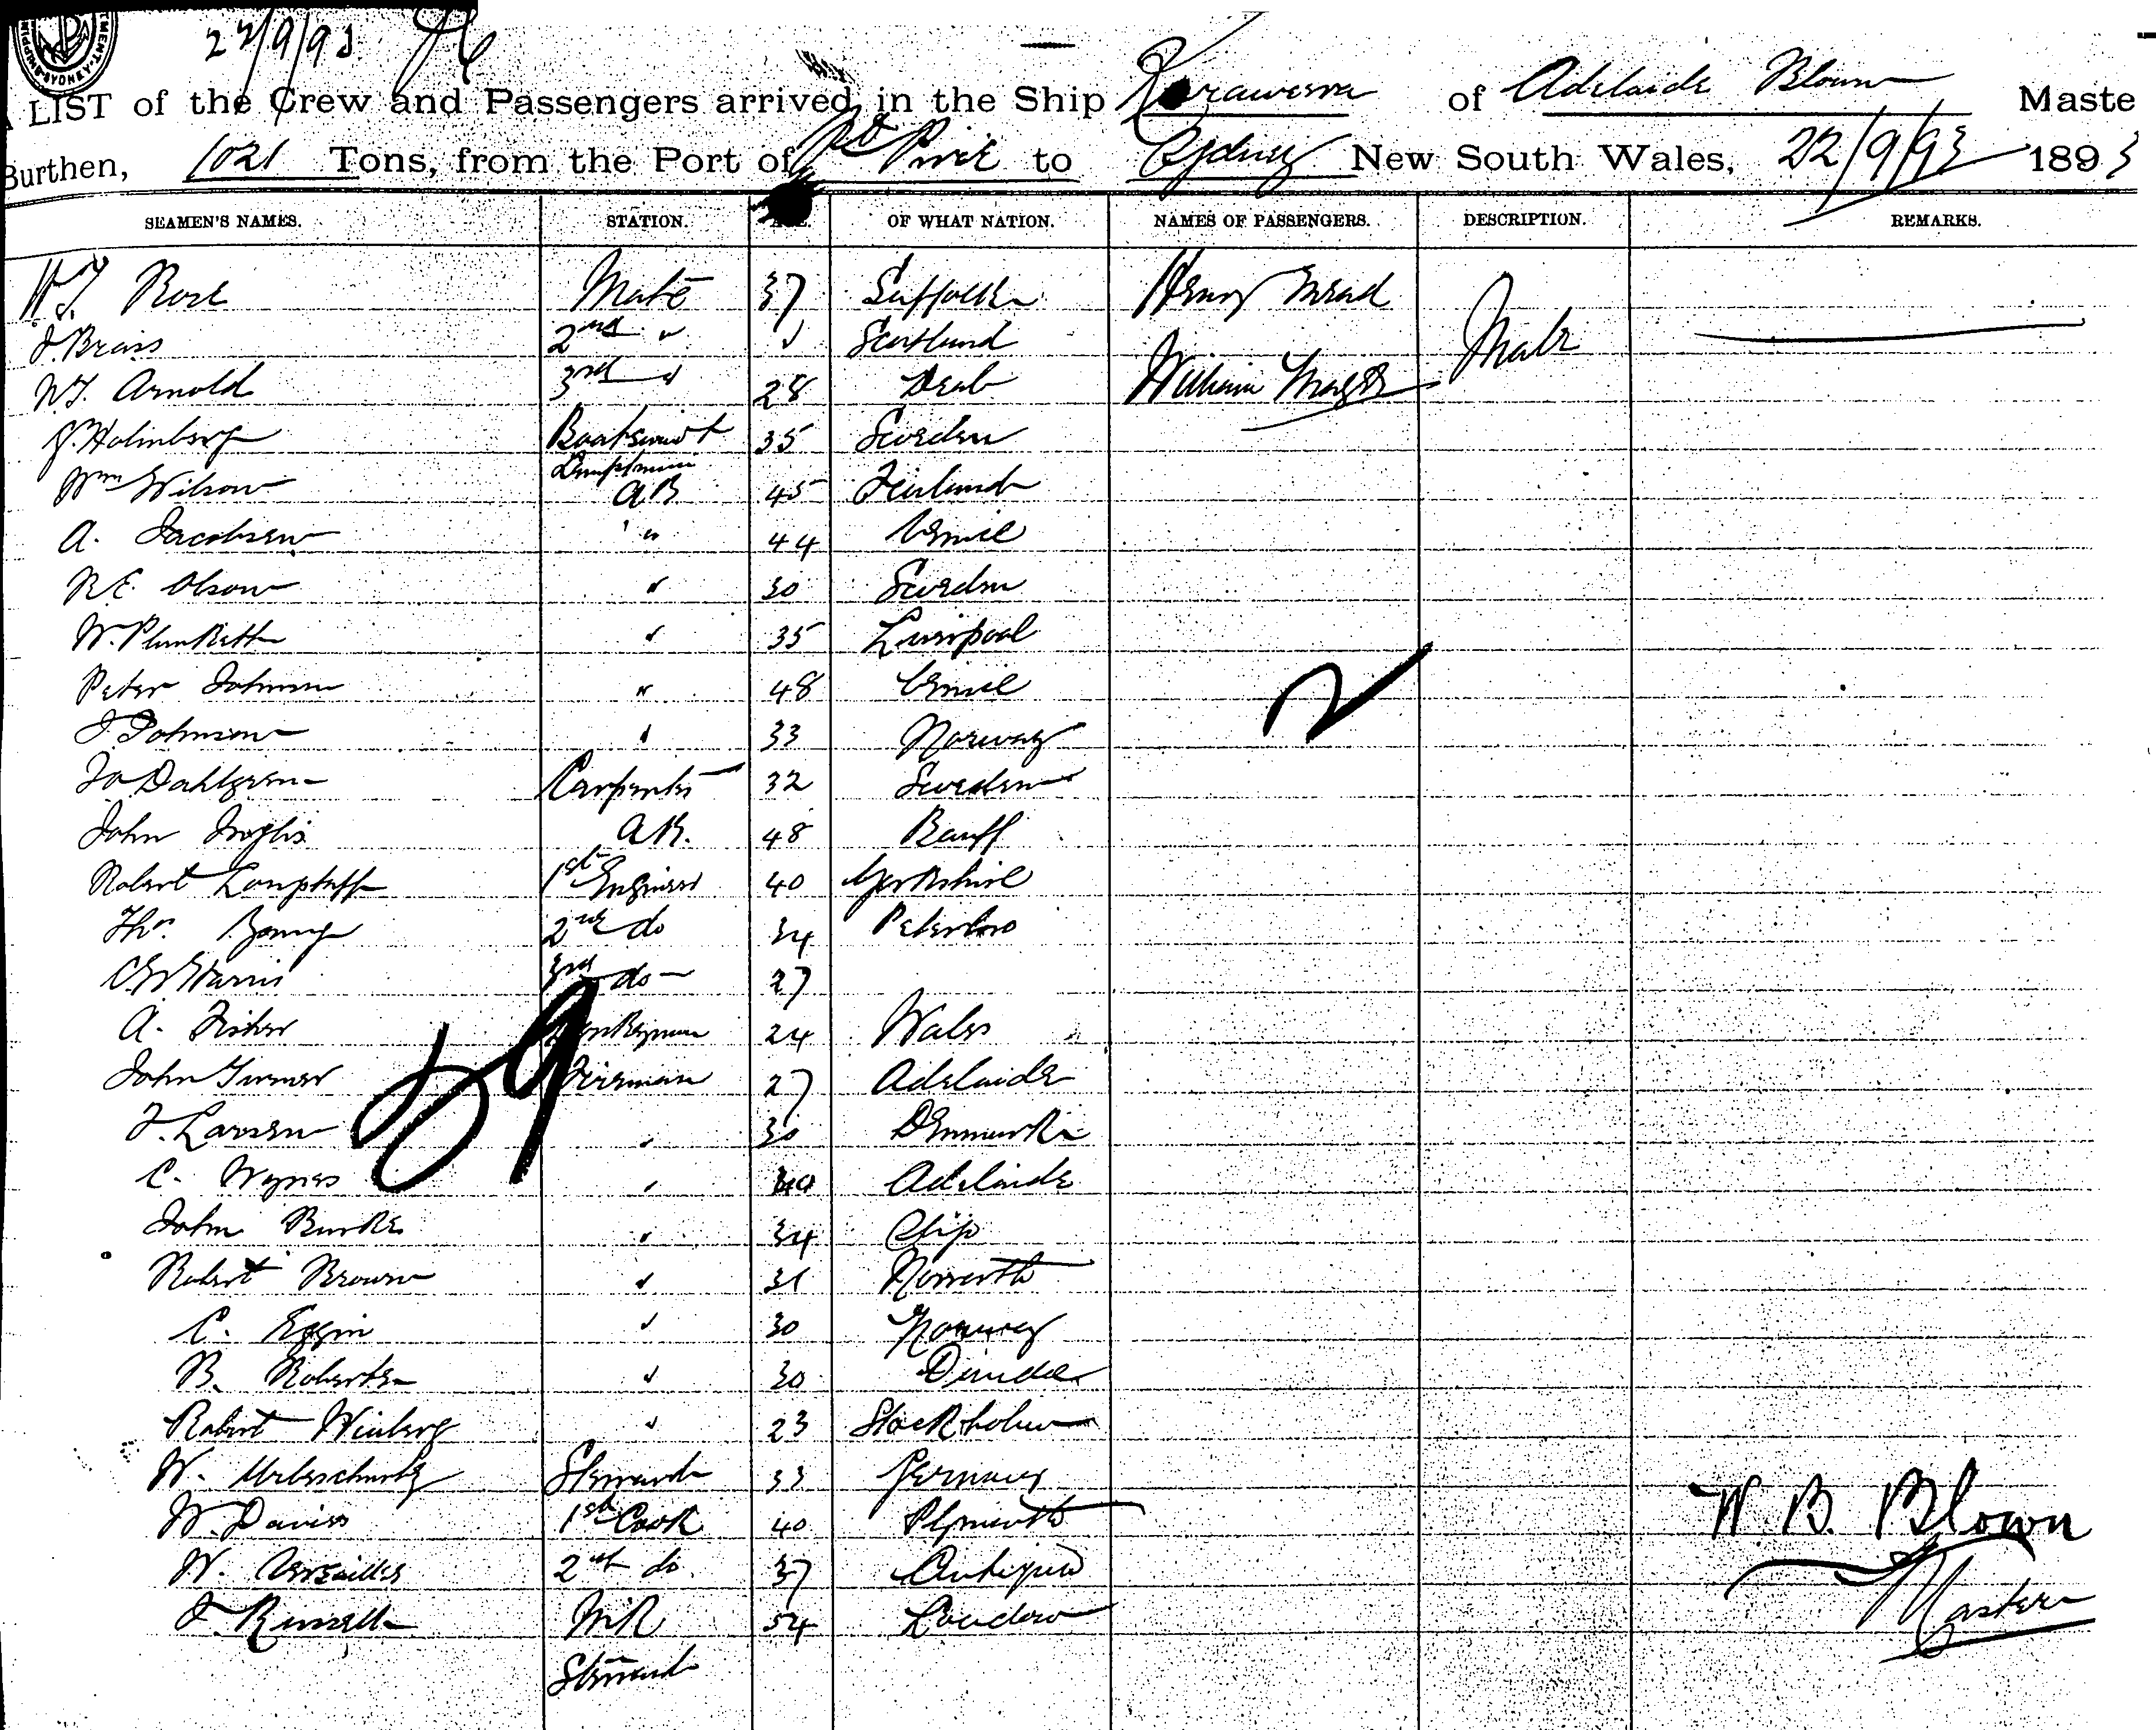 22/9/93
A LIST of the Crew and Passengers arrived in the Ship Karaweera of Adelaide Blown Maste
Burthen, 1021 Tons, from the Port of Pt Pirie to Sydney New South Wales, 22/9/93 1893
SEAMEN'S NAMES. STATION. AGE. OF WHAT NATION. NAMES OF PASSENGERS. DESCRIPTION. REMARKS.
Rose Mate 37 Suffolk Henry Mead
J. Brass 2nd " Scotland Male
W.J. Arnold 3rd " 28 Deal William
J. Holmberg Boatswain 35 Sweden
Lamptrimmer
Wm Wilson AB 45 Finland
A. Jacobsen " 44
R.E. Olsow " 30 Sweden
W. Plunkett " 35 Liverpool
Peter Johnson " 48
J. Johnson " 33 Norway
Jo Dahlgren Carpenter 32 Sweden
John Inglis A.B. 48 Banff
Robert Longstaff 1st Engineer 40 Yorkshire
Thos. Young 2nd do 34 Peterboro
C.W. Harris 3rd do 27
A. Fisher Donkeyman 24 Wales
John Turner Fireman 27 Adelaide
59
J. Larsen " 30 Denmark
C. " Adelaide
John Burke " 34
Robert Brown " 31
C. Eggin " 30 Norway
B. Roberts " 30 Dundee
Robert Winberg " 23 Stockholm
W. Steward 33 Germany
W. Davies 1st Cook 40 Plymouth
W. 2nd do. 37 Antigua
J. Russell 54 London
Steward
2
W. B. Blown
Master